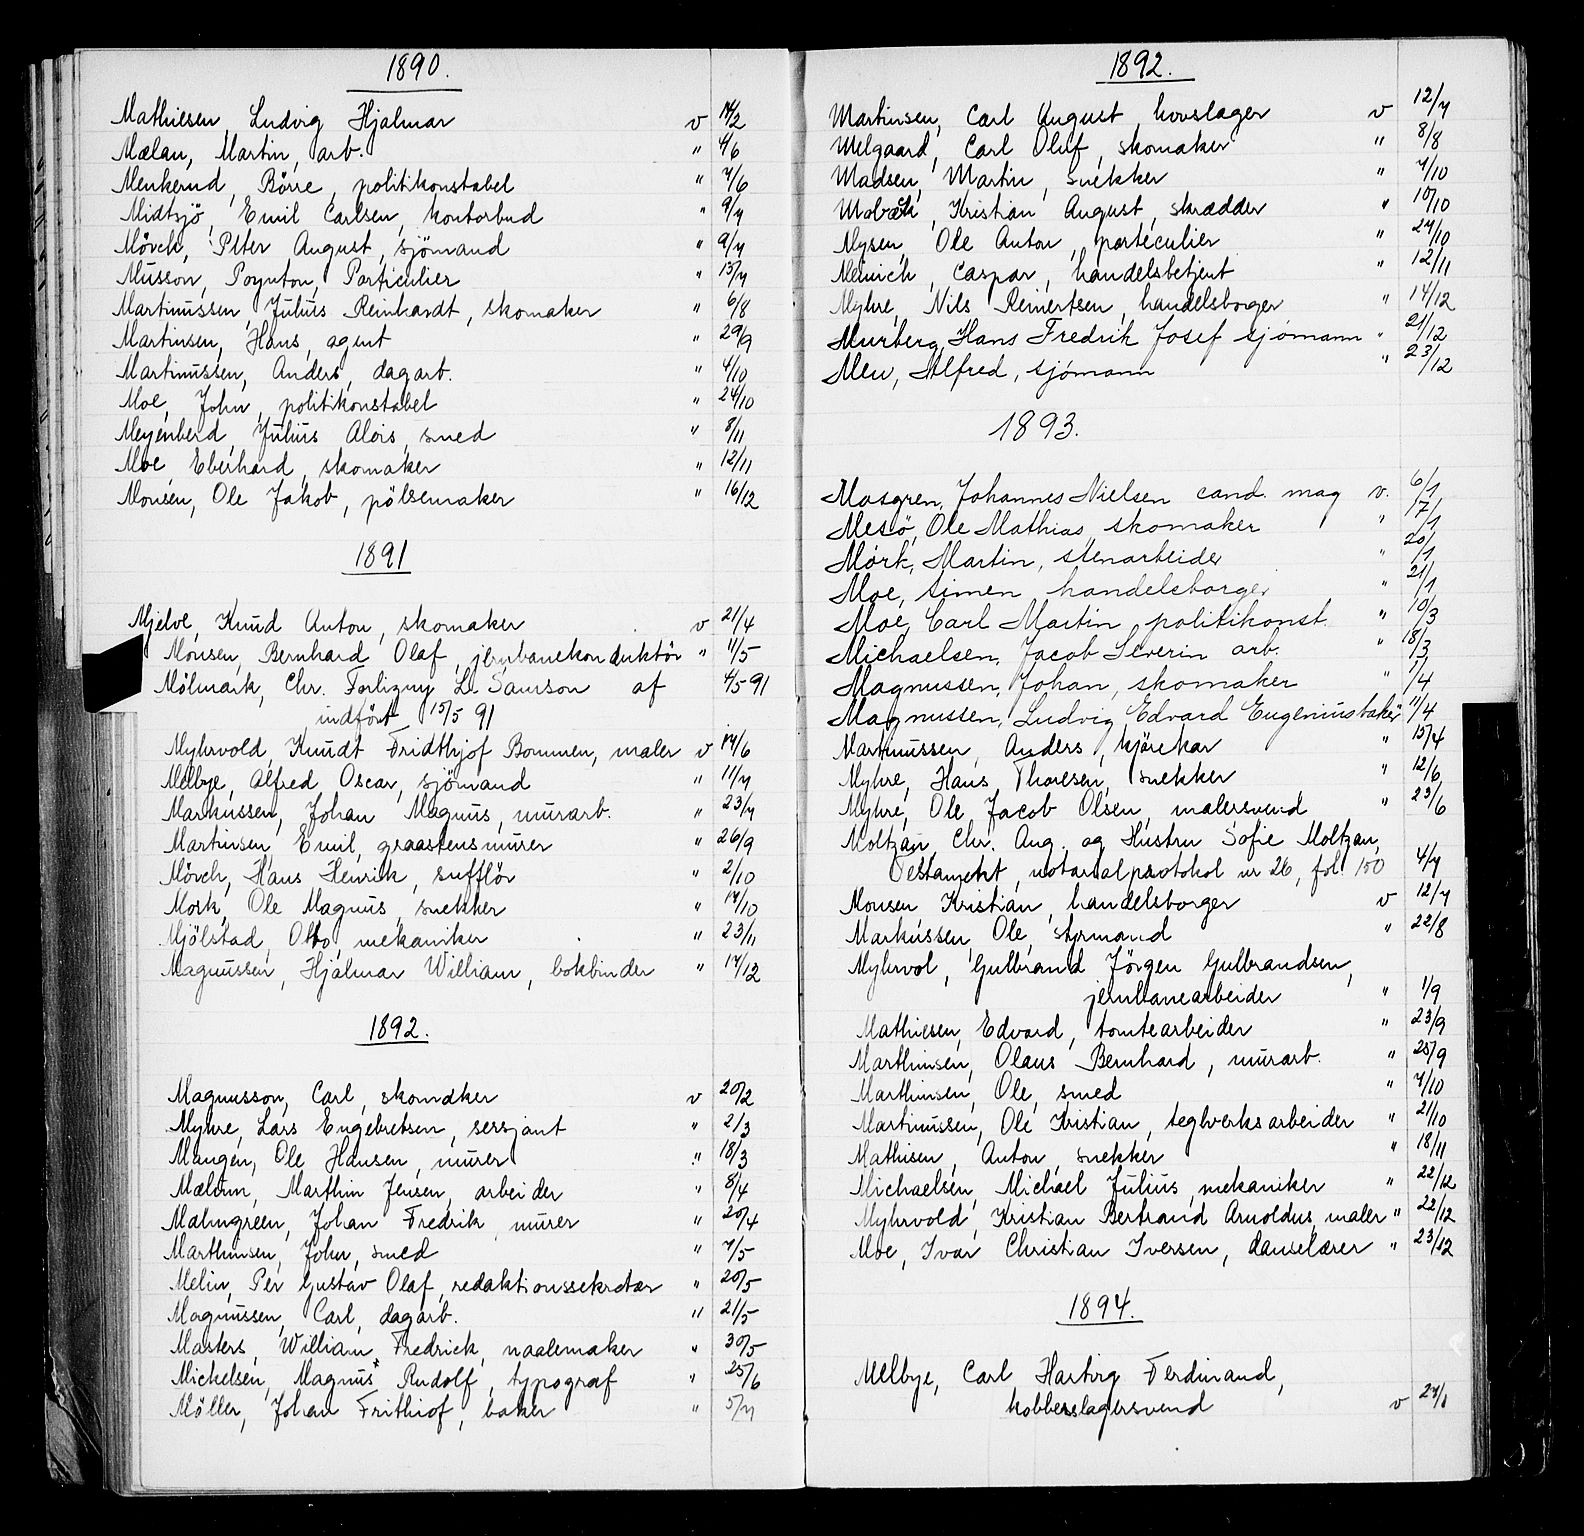 1890.
Mathiesen, Ludvig Hjalmar v 14/2
Mælan, Martin, arb. " 4/6
Menkerud, Börre, politikonstabel " 7/6
Midtsjö, Emil Carlsen, kontorbud " 9/7
Mörch, Peter August, sjömand " 9/7
Musson, Poynton, Particulier " 15/7
Martinussen, Julius Reinhardt, skomaker " 6/8
Martinsen, Hans, agent " 29/9
Martinussen, Anders, dagarb. " 4/10
Moe, John, politikonstabel " 24/10
Meyenberd, Julius Alois, smed " 8/11
Moe, Eberhard, skomaker " 12/11
Monsen, Ole Jakob, pölsemaker " 16/12
1891
Mjelve, Knud Anton, skomaker v 21/4
Monsen, Bernhard Olaf, jernbanekonduktör " 11/5
Mölmark, Chr. L. Samson af 4/5 91
indfört 15/5 91
Myhrvold, Knudt Fridthjof Bommen, maler v 17/6
Melbye, Alfred Oscar, sjömand " 11/7
Markussen, Johan Magnus, murarb. " 23/7
Martinsen, Emil, graastensmurer " 26/9
Mörch, Hans Henrik, sufflör " 2/10
Mork, Ole Magnus, snekker " 17/10
Mjölstad, Otto, mekaniker " 23/11
Magnussen, Hjalmar William, bokbinder " 17/12
1892.
Magnusson, Carl, skomaker v 20/2
Myhre, Lars Engebretsen, sersjant " 2/3
Mangen, Ole Hansen, murer " 18/3
Mælum, Marthin Jensen, arbeider " 8/4
Malmgreen, Johan Fredrik, murer " 20/4
Marthinsen, John, smed " 7/5
Melin, Per Gustav Olaf, redaktionssekretær " 20/5
Magnussen, Carl, dagarb. " 21/5
Masters, William Fredrick, naalemaker " 30/5
Mickelsen, Magnus Rudolf, typograf " 25/6
Möller, Johan Frithiof, baker " 5/7
1892.
Martinsen, Carl August, hovslager v 12/7
Melgaard, Carl Oluf, skomaker " 8/8
Madsen, Martin, snekker " 7/10
Mobæk, Kristian August, skrædder " 10/10
Mysen, Ole Anton, particulier " 24/10
Meinich, Caspar, handelsbetjent " 12/11
Myhre, Nils Reinertsen, handelsborger " 14/12
Murberg, Hans Fredrik Josef sjömann " 21/12
Meu, Alfred, sjömann " 23/12
1893.
Mosgren, Johannes Nielsen cand. mag v. 6/1
Mesö, Ole Mathias, skomaker " 17/1
Mörk, Martin, stenarbeider " 20/1
Moe, Simen handelsborger " 21/1
Moe, Carl Martin politikonst. " 10/3
Michaelsen, Jacob Severin arb. " 18/3
Magnussen, Johan, skomaker " 1/4
Magnussen, Ludvig Edvard Eugenius baker " 11/4
Martinussen, Anders, kjörekar " 15/4
Myhre, Hans Thoresen, snekker " 12/6
Myhre, Ole Jacob Olsen, malersvend " 23/6
Moltzan, Chr. Aug. og Hustru Sofie Moltzan,
Testament, notarialprotokol nr 26, fol. 150 4/7
Monsen Kristian, handelsborger v 12/7
Markussen, Ole, styrmand " 22/8
Myhrvol, Gulbrand Jörgen Gulbrandsen,
jernbanearbeider " 1/9
Mathiesen, Edvard, tomtearbeider " 23/9
Marthinsen, Olaus Bernhard, murarb. " 25/9
Marthinsen, Ole, smed " 7/10
Martinussen, Ole Kristian, teglverksarbeider " 21/10
Mathisen, Anton, snekker " 18/11
Michaelsen, Michael Julius, mekaniker " 22/12
Myhrvold, Kristian Bertrand Arnoldus, maler " 22/12
Moe, Ivar Christian Iversen, danselærer " 23/12
1894.
Melbye, Carl Hartvig Ferdinand,
kobberslagersvend v 27/1